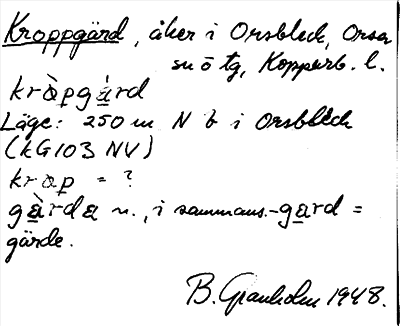 Kroppgärd, åker i Orsbleck, Orsa
sn ö tg, Kopparb. l.
kràpgàrd
Läge: 250 m N b i Orsbleck
(KG103 NV)
krap = ?
gàrda n., i sammans. -gard =
gärde.
B. Granholm 1948.